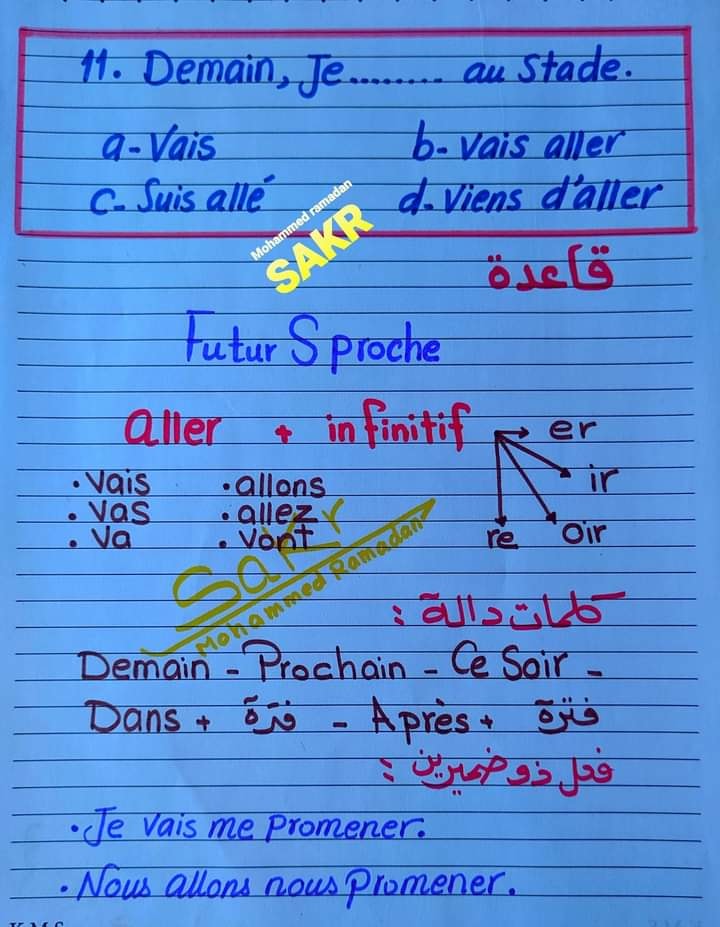 11. Demain, Je......... au Stade.
a- Vais b- vais aller
c- Suis allé d- Viens d'aller
Mohammed ramadan
SAKR
قاعدة
Futur S proche
aller + infinitif → er
• vais • allons ir
• vas • allez
• va • vont re oir
Sakr
Mohammed Ramadan
كلمات دالة :
Demain - Prochain - Ce Soir -
Dans + فترة - Après + فترة
فعل ذو ضميرين :
• Je vais me promener.
• Nous allons nous promener.